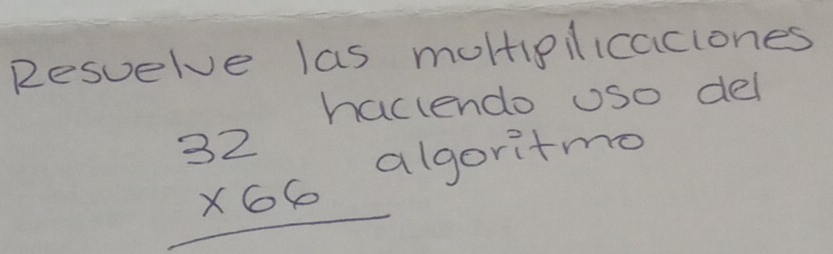 Resuelve las moltipilicaciones
haciendo uso del
algoritmo
32
x66